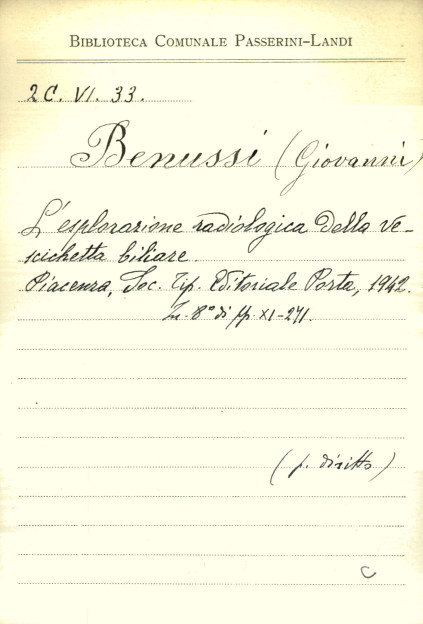 BIBLIOTECA COMUNALE PASSERINI-LANDI
2C. VI. 33.
Benussi (Giovanni)
L'esplorazione radiologica della ve-
scichetta biliare.
Piacenza, Soc. Tip. Editoriale Porta, 1942.
In-8° di pp. XI-271.
(p. diritto)
C